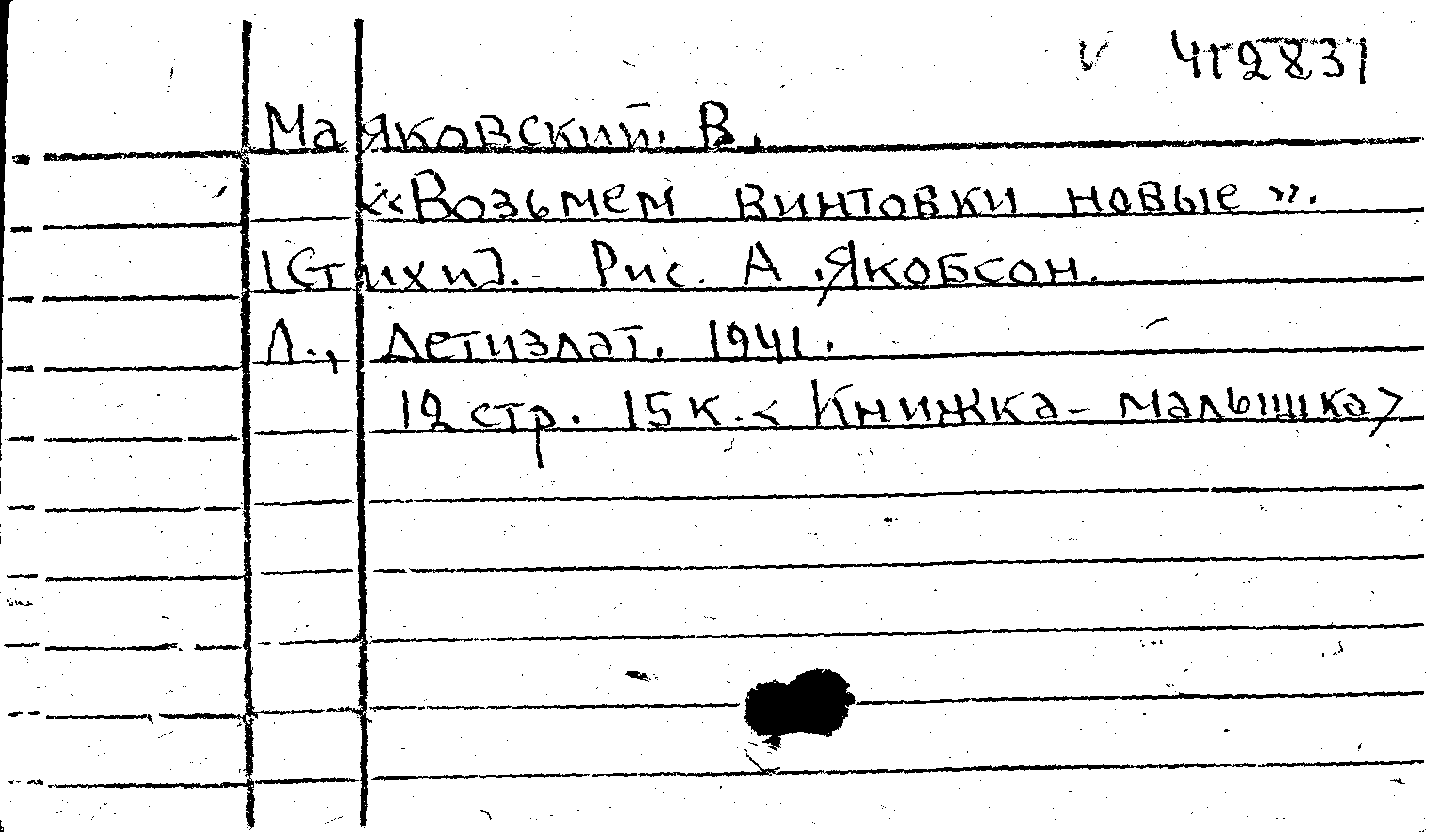 V 412831
Маяковский. В.
«Возьмем винтовки новые».
[Стихи]. Рис. А. Якобсон.
Л., Детиздат. 1941.
12 стр. 15 к. < Книжка - малышка>